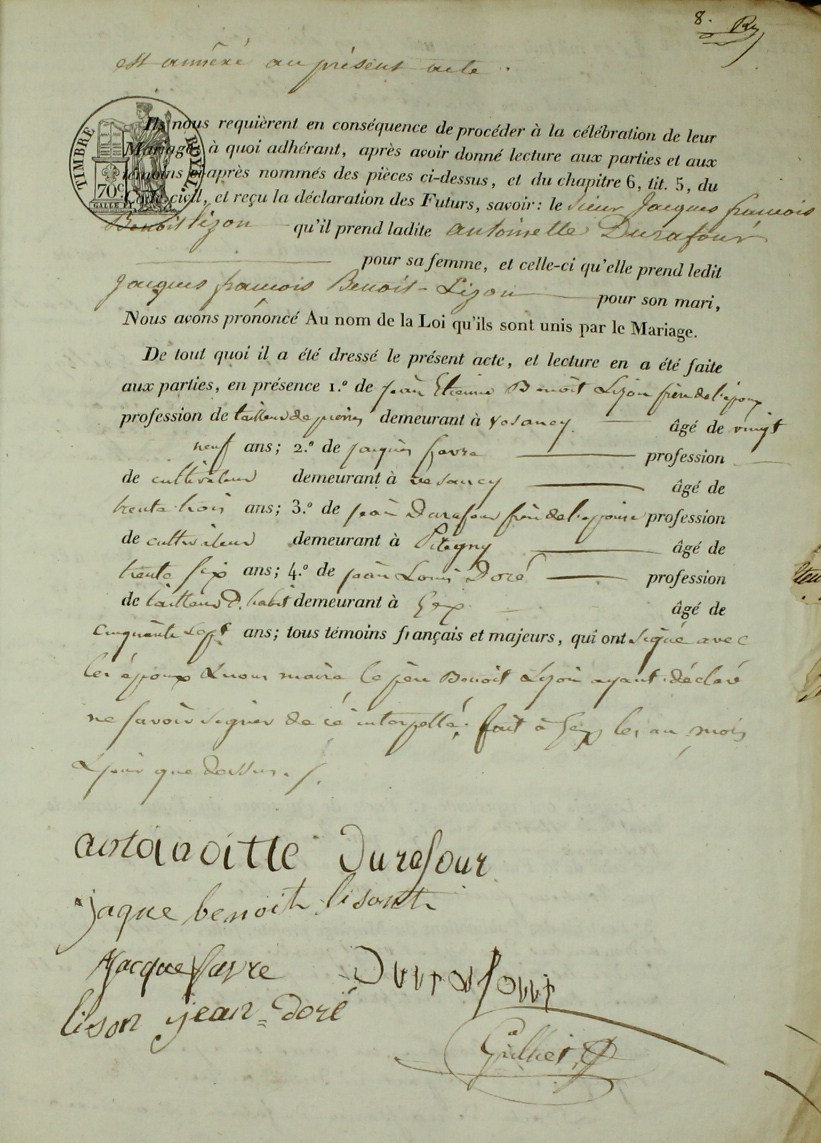 8.
est annéxé au présent acte.
TIMBRE ROYAL
70c
Ils nous requièrent en conséquence de procéder à la célébration de leur
Mariage, à quoi adhérant, après avoir donné lecture aux parties et aux
témoins après nommés des pièces ci-dessus, et du chapitre 6, tit. 5, du
Code civil, et reçu la déclaration des Futurs, savoir: le sieur Jacques francois
Benoit lizon qu'il prend ladite antoinette Durafour
pour sa femme, et celle-ci qu'elle prend ledit
Jacques francois Benoit-Lizon pour son mari,
Nous avons prononcé Au nom de la Loi qu'ils sont unis par le Mariage.
De tout quoi il a été dressé le présent acte, et lecture en a été faite
aux parties, en présence 1.° de jean Etienne Benoit Lizon frère de l'époux
profession de tailleur de pierres demeurant à vesancy âgé de vingt
neuf ans; 2.° de jacques favre profession
de cultivateur demeurant à vesancy âgé de
trente trois ans; 3.° de jean Durafour frère de l'épouse profession
de cultivateur demeurant à âgé de
trente six ans; 4.° de jean Louis Doré profession
de tailleur d'habit demeurant à Gex âgé de
cinquante sept ans; tous témoins français et majeurs, qui ont signé avec
les époux & nous maire le père Benoit Lizon ayant déclaré
ne savoir signer de ce interpellé. fait à Gex les an, mois
& jour que dessus.
antanoitte Durefour
jaque benoit lisont
Jacque favre Durafour
lison jean=doré